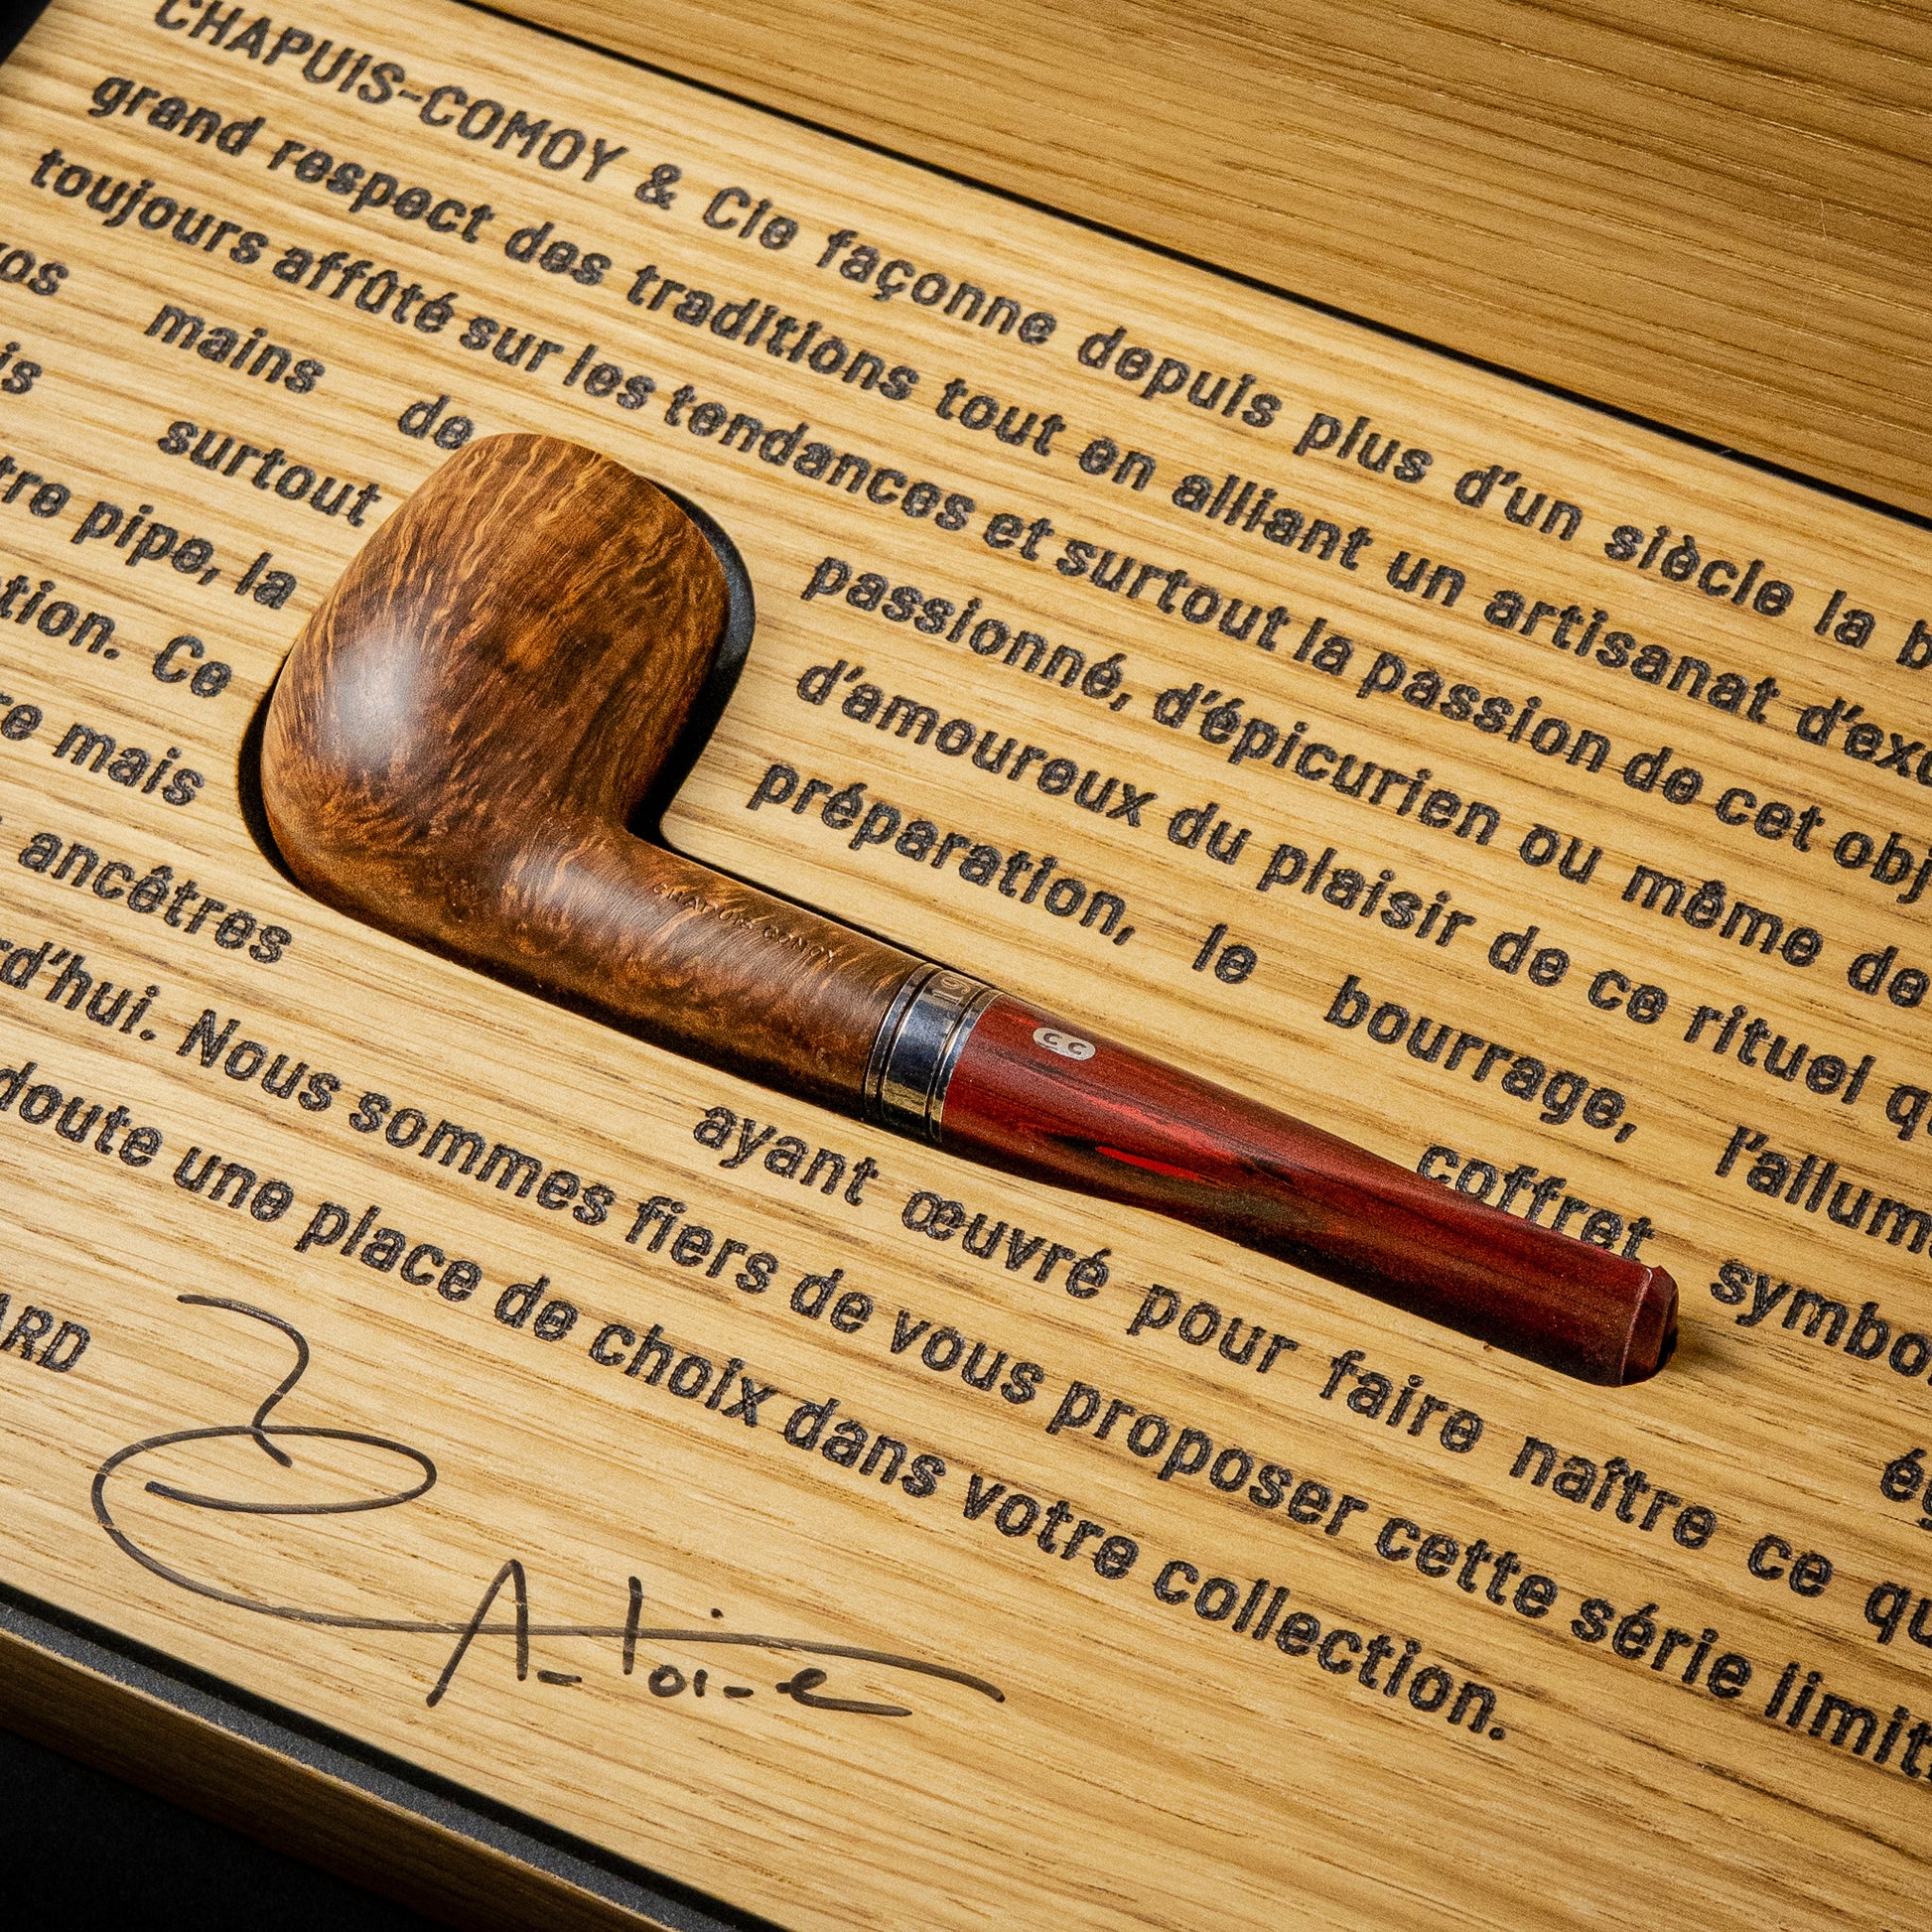 CHAPUIS-COMOY & Cie façonne depuis plus d'un siècle la
grand respect des traditions tout en alliant un artisanat
toujours affûté sur les tendances et surtout la passion de cet
mains de passionné, d'épicurien ou même de
surtout d'amoureux du plaisir de ce rituel
pipe, la préparation, le bourrage,
Ce coffret
mais
ancêtres ayant œuvré pour faire naître ce
Nous sommes fiers de vous proposer cette série
doute une place de choix dans votre collection.
Antoine
CHAPUIS COMOY
CC